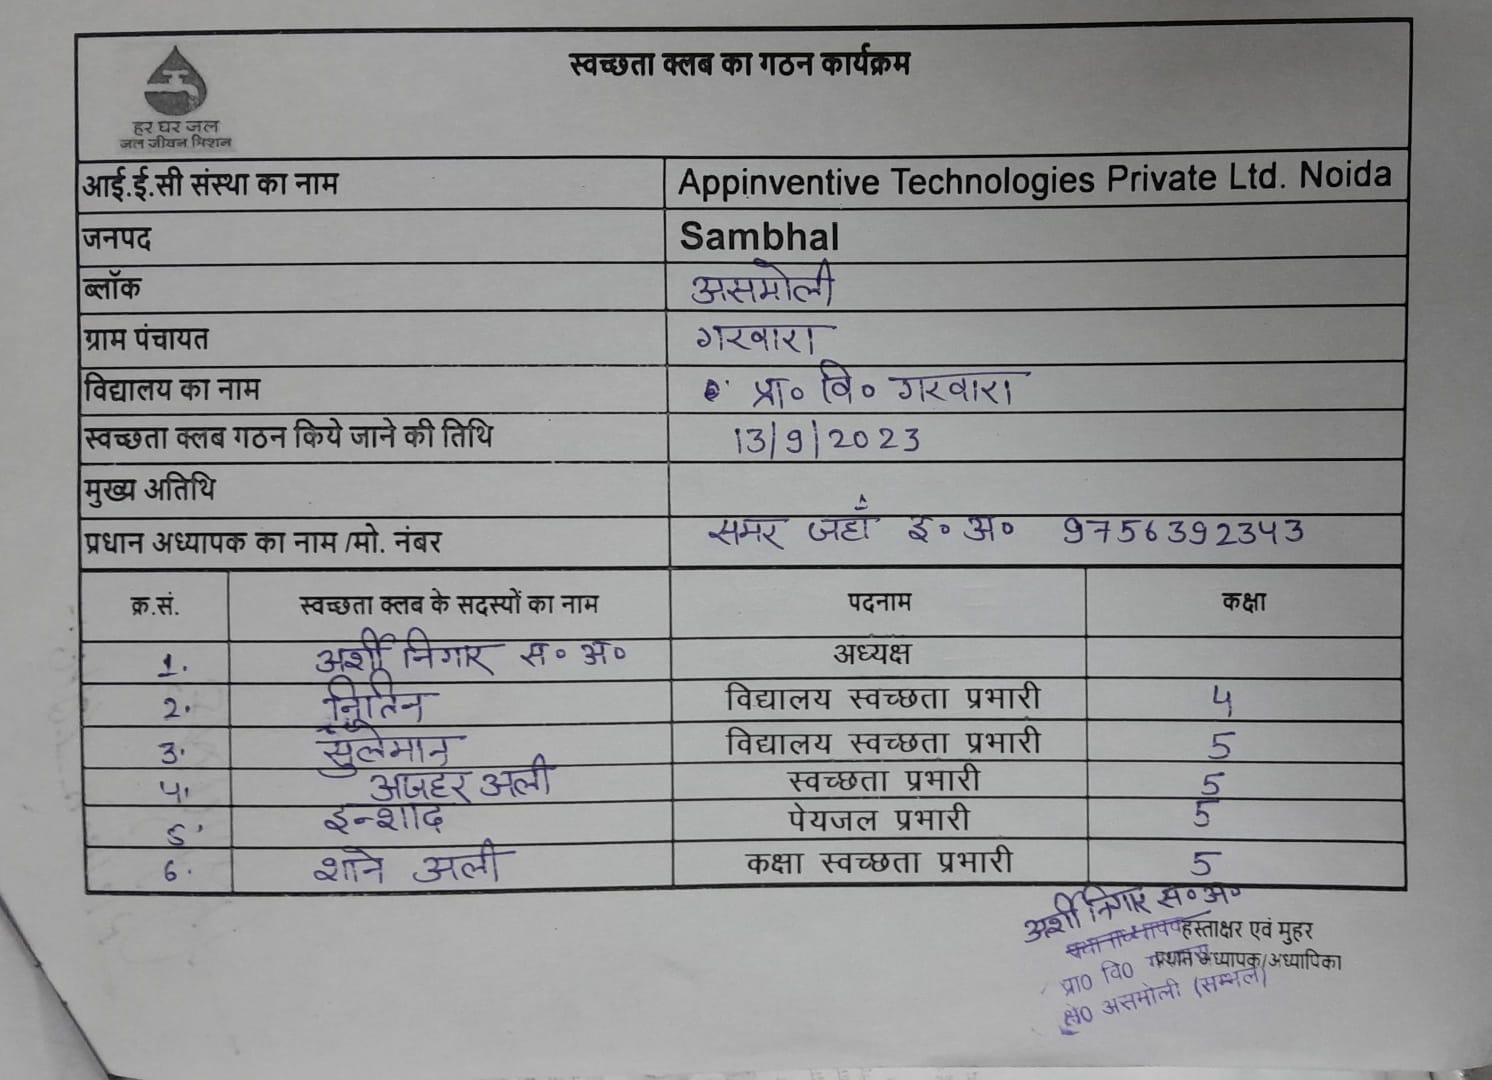 स्वच्छता क्लब का गठन कार्यक्रम
हर घर जल
जल जीवन मिशन
आई.ई.सी संस्था का नाम Appinventive Technologies Private Ltd. Noida
जनपद Sambhal
ब्लॉक असमोली
ग्राम पंचायत गरवारा
विद्यालय का नाम प्रा० वि० गरवारा
स्वच्छता क्लब गठन किये जाने की तिथि 13/9/2023
मुख्य अतिथि
प्रधान अध्यापक का नाम /मो. नंबर समर जहाँ इ० अ० 9756392343
क्र.सं. स्वच्छता क्लब के सदस्यों का नाम पदनाम कक्षा
1. अर्शी निगार स० अ० अध्यक्ष
2. नितिन विद्यालय स्वच्छता प्रभारी 4
3. सुलेमान विद्यालय स्वच्छता प्रभारी 5
4. अजहर अली स्वच्छता प्रभारी 5
5. इन्शाद पेयजल प्रभारी 5
6. शाने अली कक्षा स्वच्छता प्रभारी 5
अर्शी निगार स० अ०
हस्ताक्षर एवं मुहर
प्रधान अध्यापक/अध्यापिका
प्रा० वि०
क्षे० असमोली (सम्भल)